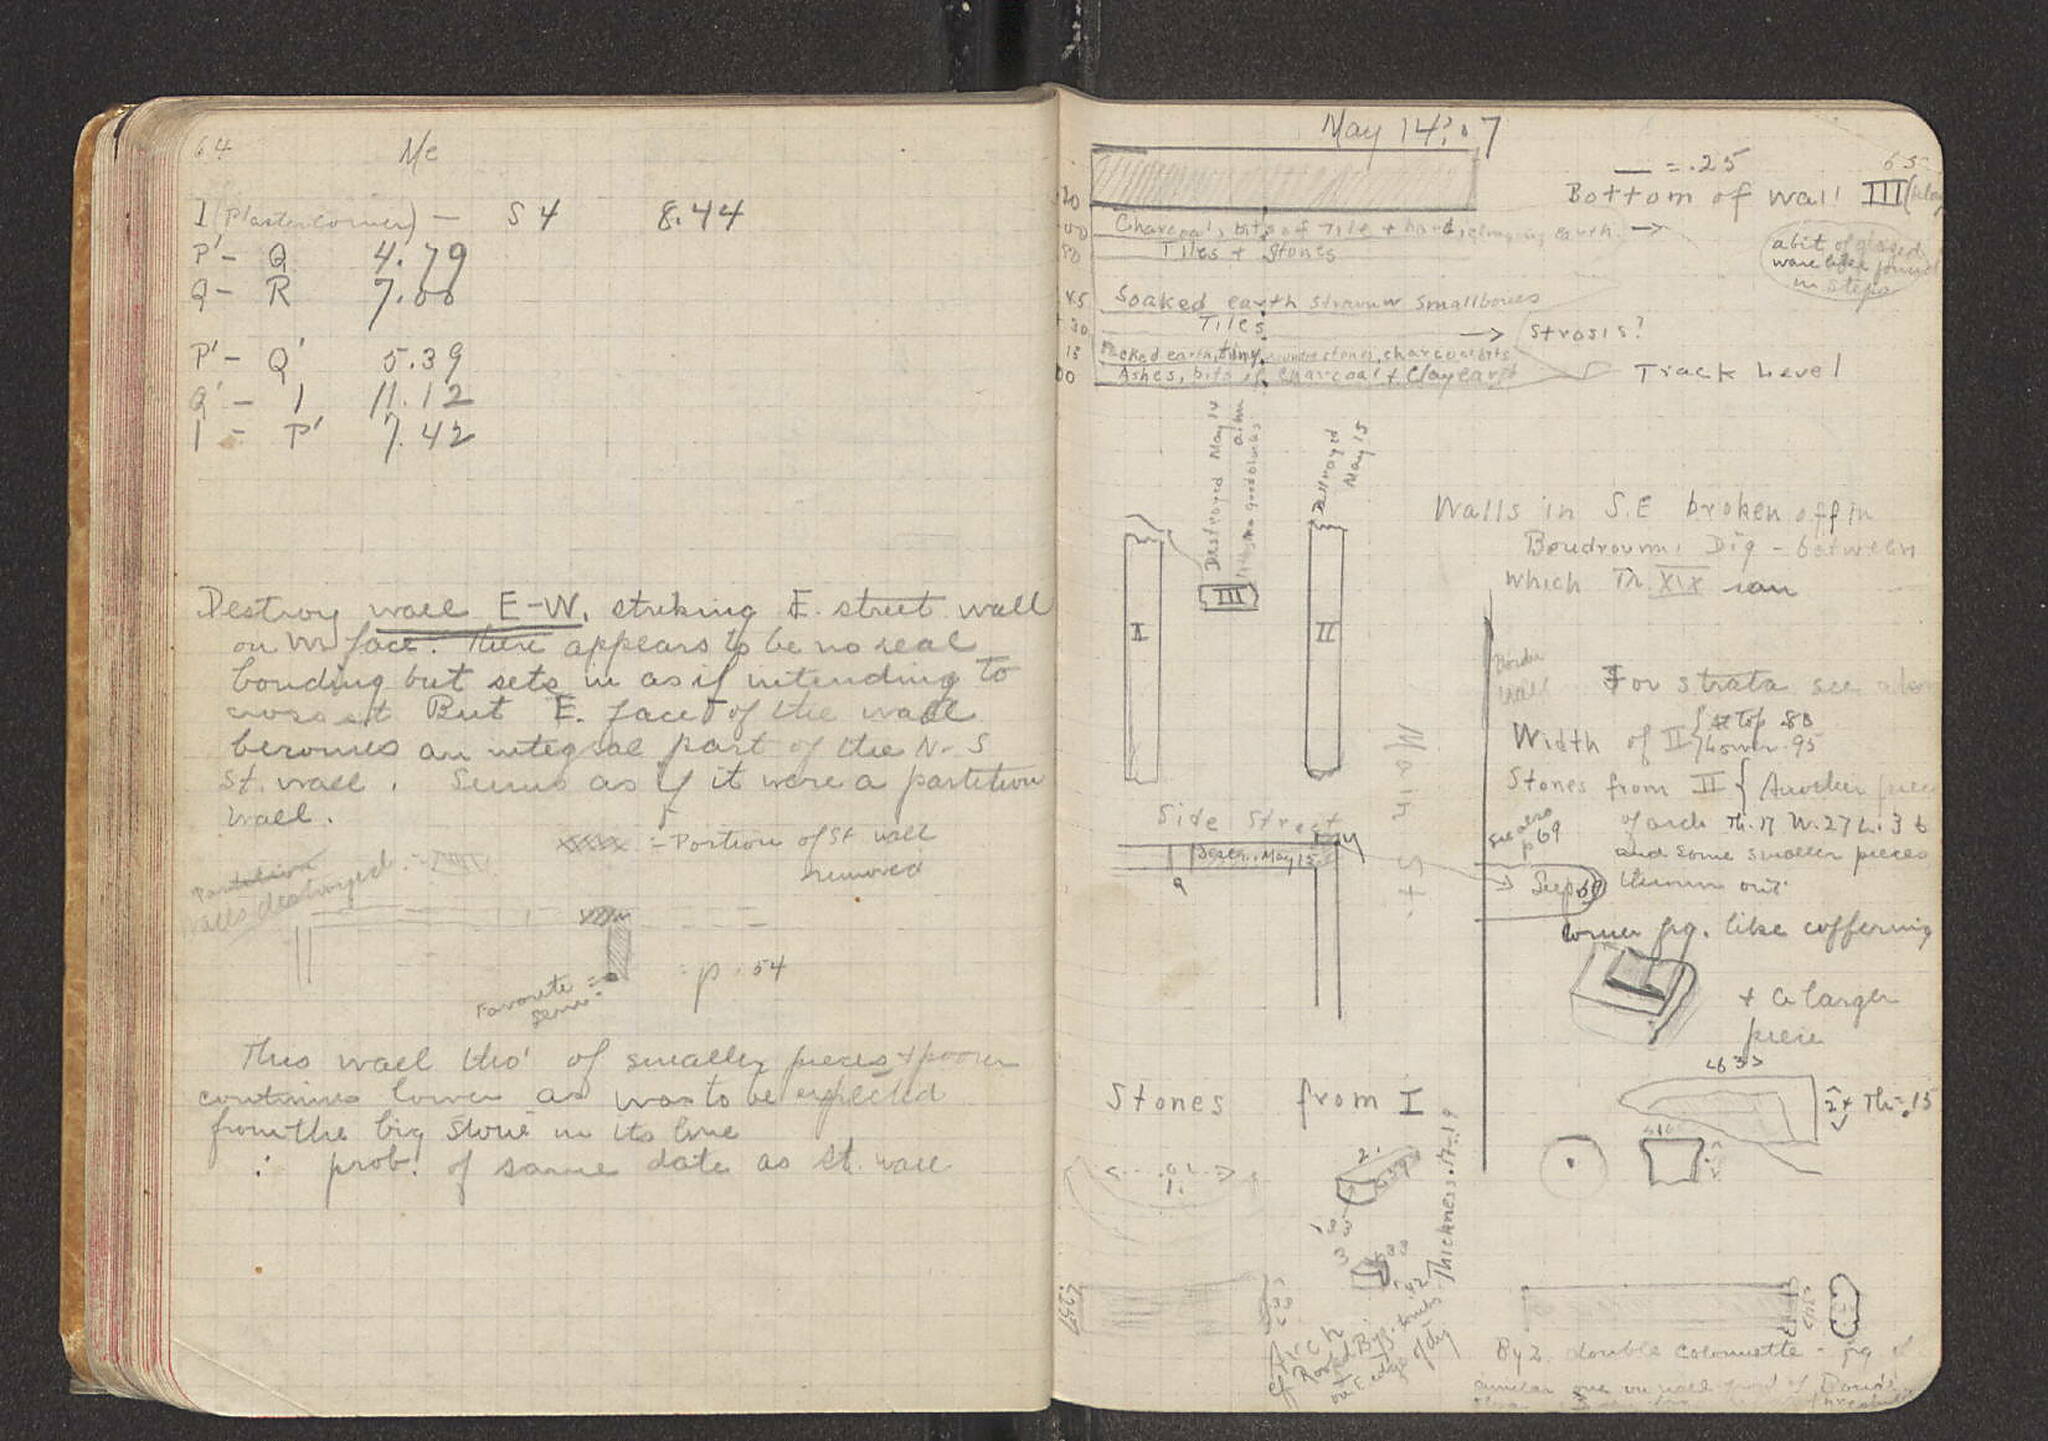 64
Me
I (Plaster Corner) — S 4 8.44
P' - Q 4.79
Q - R 7.00
P' - Q' 5.39
Q' - 1 11.12
1 - P' 7.42
Destroy wall E-W, striking E. street wall
on W face. There appears to be no real
bonding but sets in as if intending to
cross it But E. face of the wall
becomes an integral part of the N-S
St. wall. Seems as if it were a partition
wall.
= Portion of St wall
removed
Partition
walls destroyed =
Favorite =
= p. 54
This wall tho' of smaller pieces + poorer
continues lower as was to be expected
from the big stone in its line
∴ prob. of same date as St. wall
May 14. 07
65
— = .25
Bottom of wall III
Charcoal, bits of Tile + hard, clinging earth →
Tiles + Stones
a bit of glazed
ware like found
in steps
45 Soaked earth strewn w small bones
30 Tiles → Strosis?
15 Packed earth, tiny stones, charcoal bits
00 Ashes, bits of charcoal + clay earth
Track Level
Destroyed May 14
Destroyed
May 15
Walls in S.E broken off in
Boudroumi Dig - between
which Th. XIX ran
I
III
II
Border
wall
For strata see above
Width of II { at top 80
lower .95
Main St.
Side Street
Destr. May 15
a
Stones from II { Another piece
of arch Th. 17 W. 27 L. 36
and some smaller pieces
thrown out
See also
p 69
See p 69
Corner frg. like coffering
+ a larger
piece
Stones from I
<63>
Th = .15
Thickness .17-.19
Arch
Byz. double colonnette - frg of
similar one on wall